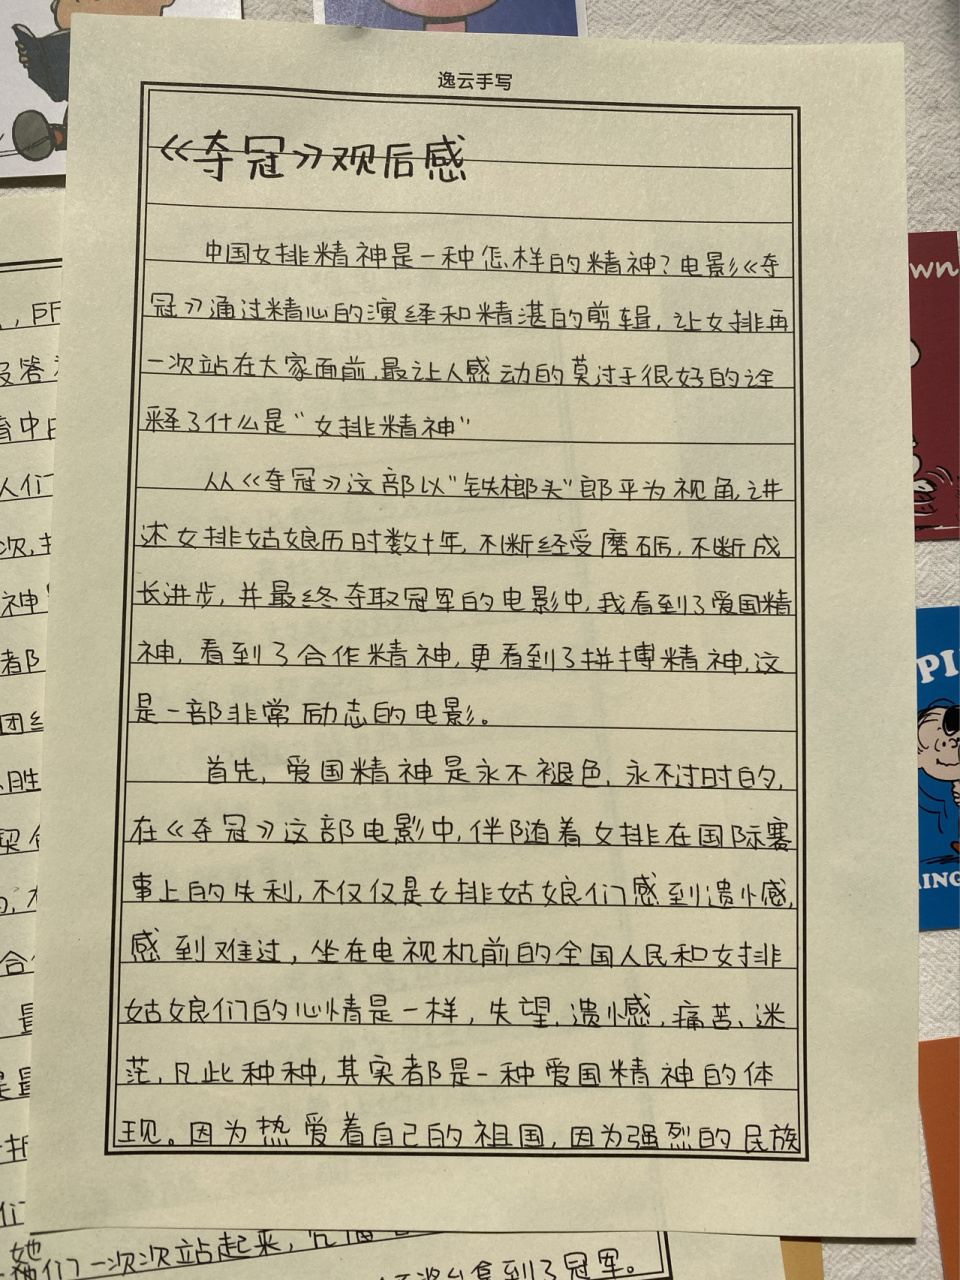 逸云手写
《夺冠》观后感
中国女排精神是一种怎样的精神?电影《夺
冠》通过精心的演绎和精湛的剪辑,让女排再
一次站在大家面前,最让人感动的莫过于很好的诠
释了什么是“女排精神”
从《夺冠》这部以“铁榔头”郎平为视角,讲
述女排姑娘历时数十年,不断经受磨砺,不断成
长进步,并最终夺取冠军的电影中,我看到了爱国精
神,看到了合作精神,更看到了拼搏精神,这
是一部非常励志的电影。
首先,爱国精神是永不褪色,永不过时的,
在《夺冠》这部电影中,伴随着女排在国际赛
事上的失利,不仅仅是女排姑娘们感到遗憾,
感到难过,坐在电视机前的全国人民和女排
姑娘们的心情是一样,失望、遗憾、痛苦、迷
茫,凡此种种,其实都是一种爱国精神的体
现。因为热爱着自己的祖国,因为强烈的民族
她们一次次站起来,
拿到了冠军。
wn
PI
ING